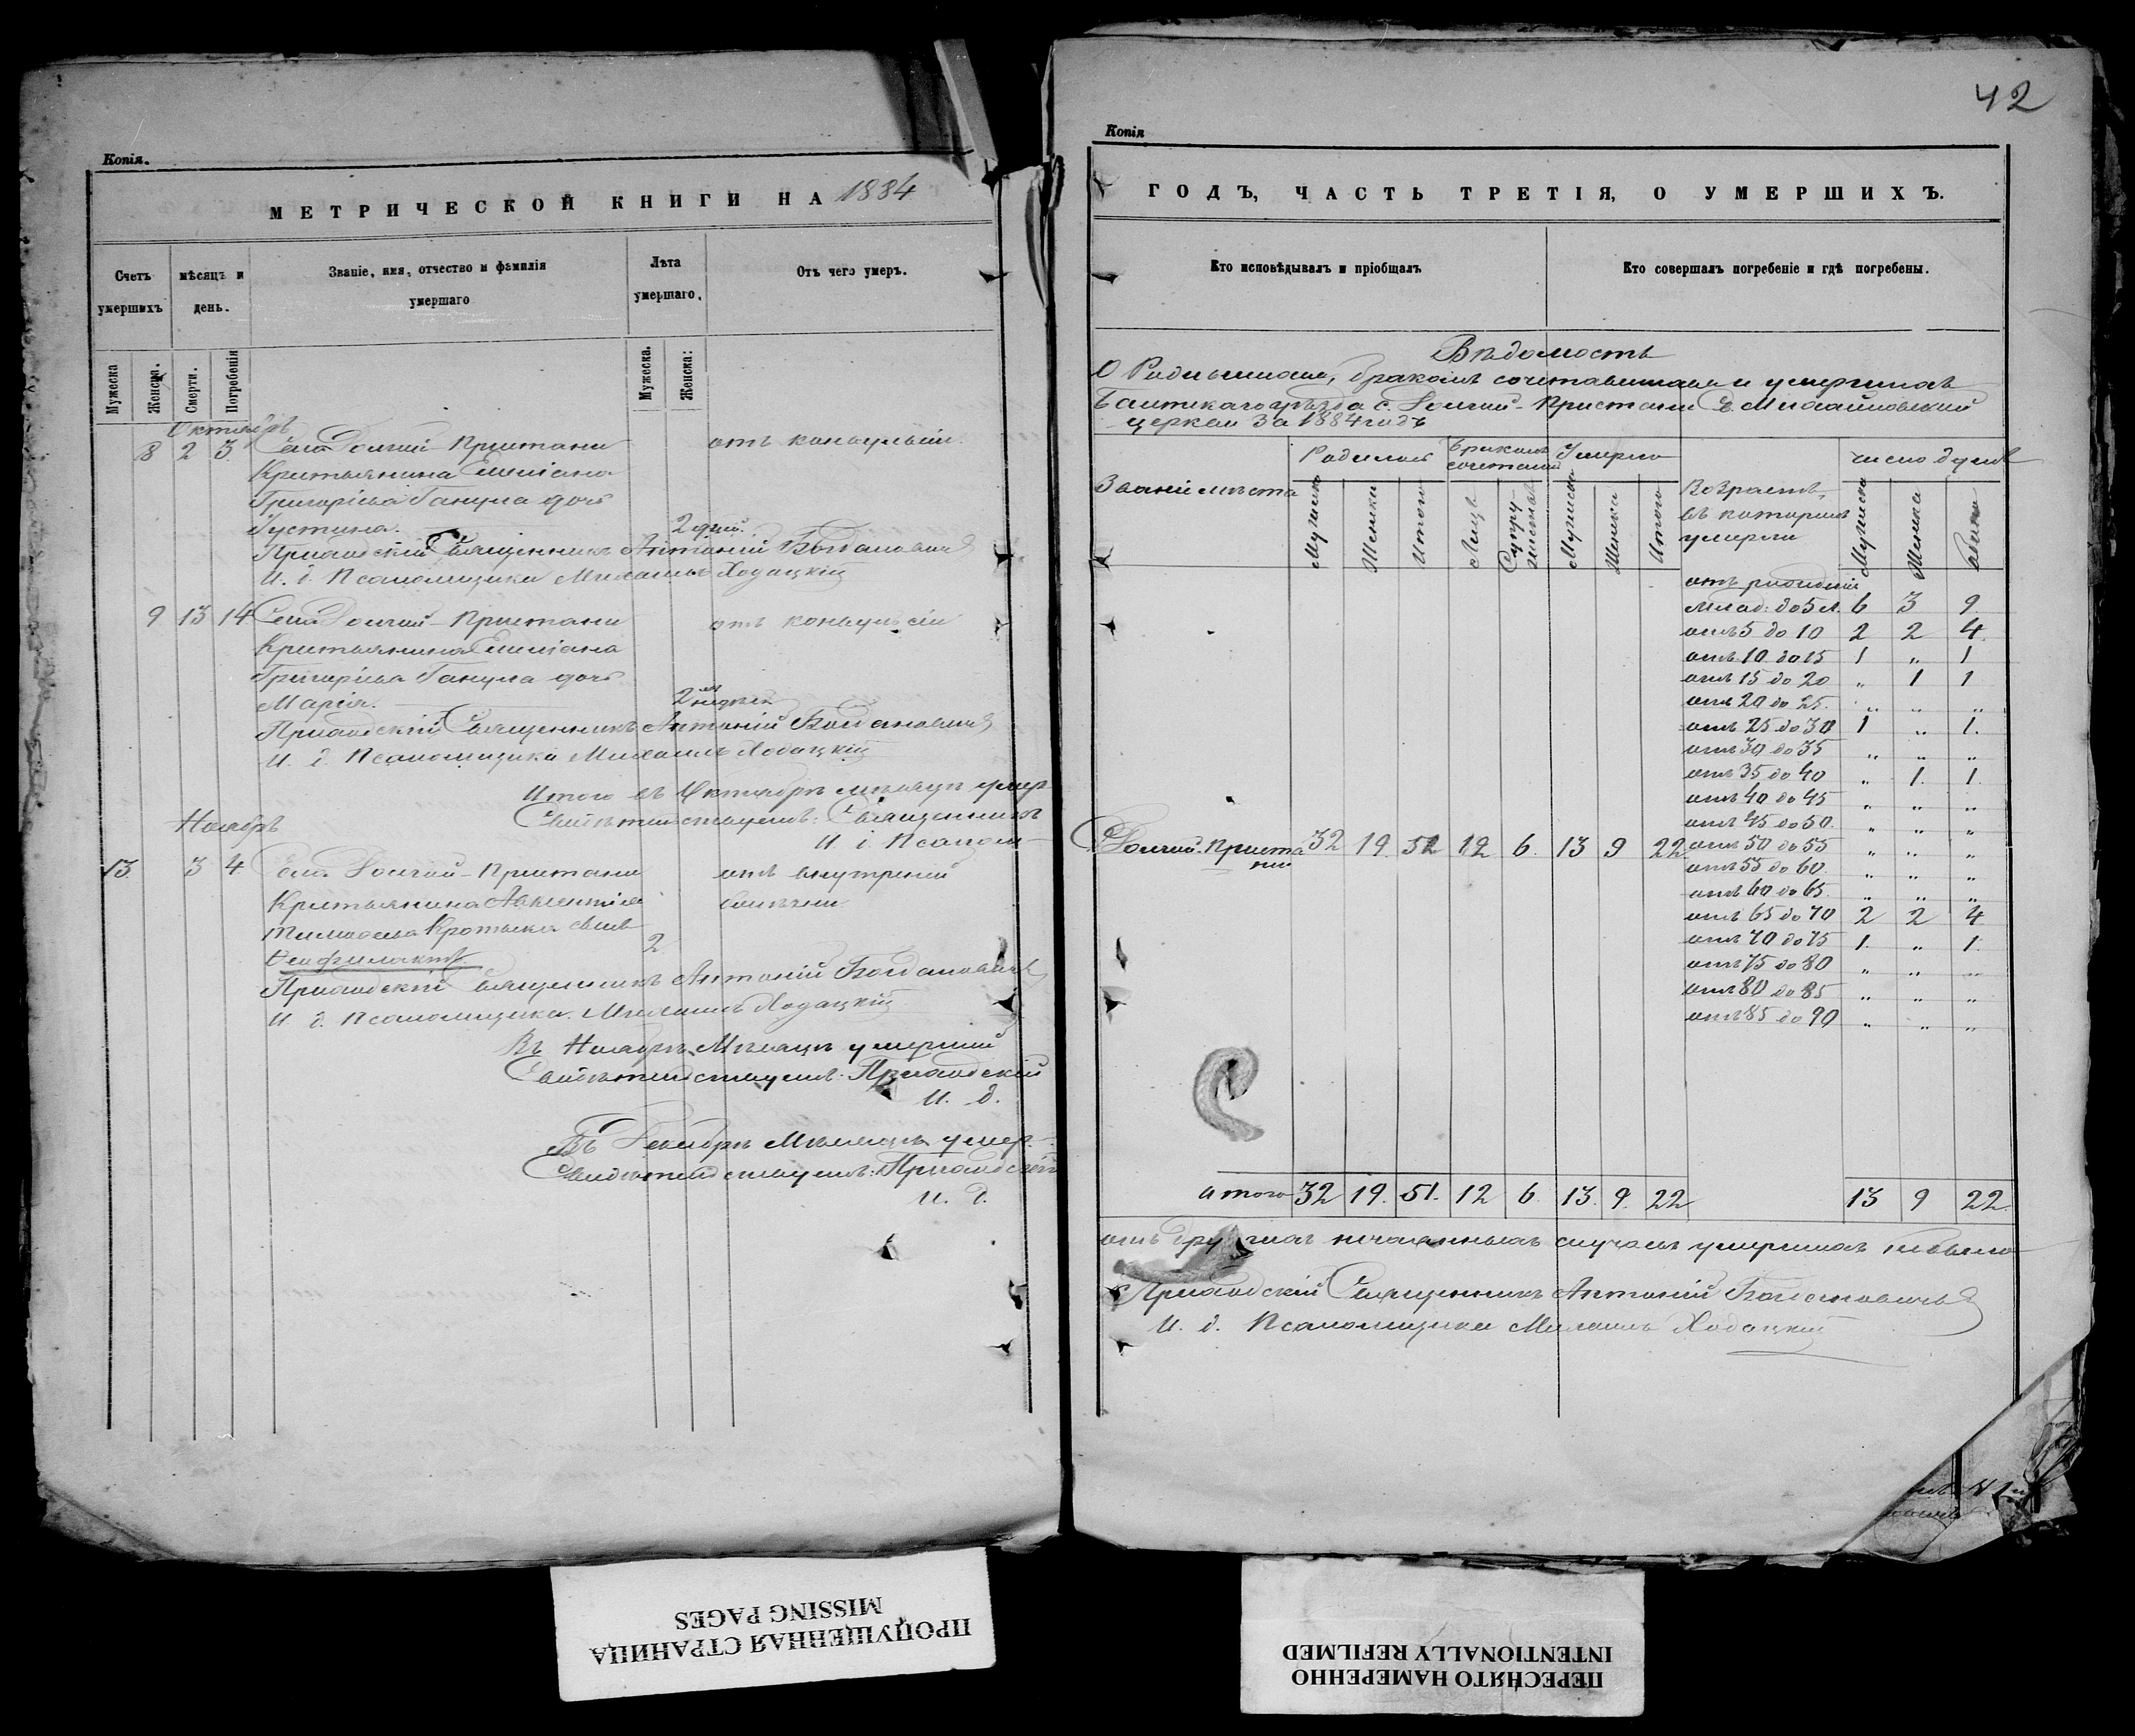 Копія.
МЕТРИЧЕСКОЙ КНИГИ НА 1884
Счетъ умершихъ
мѣсяцъ и день.
Званіе, имя, отчество и фамилія умершаго
Лѣта умершаго.
Отъ чего умеръ.
Мужеска
Женска.
Смерти.
Погребенія
Мужеска.
Женска:
Октябрь
8 2 3 Села Долгой Пристани отъ конвульсіи.
Крестьянина Емиліана
Григоріева Ганула дочь
Іустина. 2 дней.
Приходскій Священникъ Антоній Богдановичъ
И. д. Псаломщика Михаилъ Ходацкій
9 13 14 Села Долгой-Пристани отъ конвульсіи
Крестьянина Емиліана
Григоріева Ганула дочь
Марія. 2 недѣли
Приходскій Священникъ Антоній Богдановичъ
И. д. Псаломщика Михаилъ Ходацкій
Итого въ Октябрѣ мѣсяцѣ умер-
Свидѣтельствуемъ: Священникъ
И. д. Псалом-
Ноябрь
13. 3 4 Села Долгой-Пристани отъ внутреней
Крестьянина Авксентія болѣзни.
Тимофеева сынъ
Феофилактъ. 2
Приходскій Священникъ Антоній Богдановичъ
И. д. Псаломщика Михаилъ Ходацкій
Въ Ноябрѣ Мѣсяцѣ умершій
Свидѣтельствуемъ: Приходскій
И. д.
Въ Декабрѣ Мѣсяцѣ умер-
Свидѣтельствуемъ: Приходскій
И. д.
42
Копія
ГОДЪ, ЧАСТЬ ТРЕТІЯ, О УМЕРШИХЪ.
Кто исповѣдывалъ и пріобщалъ
Кто совершалъ погребеніе и гдѣ погребены.
Вѣдомость
О Родившихся, бракомъ сочетавшихся и умершихъ
Балтскаго уѣзда с. Долгой-Пристани Св. Михайловской
церкви За 1884 годъ
Званіе мѣста
Родилось
Бракомъ сочетаній
Умерло
Возрастъ, въ которомъ умерли
число душъ
Мужеска
Женска
Итого
Лицъ
Супружествъ
Мужеска
Женска
Итого
Мужеска
Женска
отъ рожденія
Млад: до 5 л. 6 3 9.
отъ 5 до 10 2 2 4.
отъ 10 до 15 1 „ 1
отъ 15 до 20 „ 1 1
отъ 20 до 25. „ „ „
отъ 25 до 30 1 „ 1.
отъ 30 до 35 „ „ „
отъ 35 до 40 „ 1. 1.
отъ 40 до 45 „ „ „
отъ 45 до 50. „ „ „
Долгой-Пристани 32 19. 51 12 6. 13 9 22. отъ 50 до 55 „ „ „
отъ 55 до 60. „ „ „
отъ 60 до 65. „ „ „
отъ 65 до 70 2 2 4
отъ 70 до 75 1. „ 1.
отъ 75 до 80 „ „ „
отъ 80 до 85 „ „ „
отъ 85 до 90 „ „ „
итого 32 19. 51. 12 6. 13. 9. 22 13 9 22.
отъ другихъ нечаянныхъ случаевъ умершихъ небыло
Приходскій Священникъ Антоній Богдановичъ
И. д. Псаломщика Михаилъ Ходацкій
ПРОПУЩЕННАЯ СТРАНИЦА
MISSING PAGES
ПЕРЕСНЯТО НАМЕРЕННО
INTENTIONALLY REFILMED